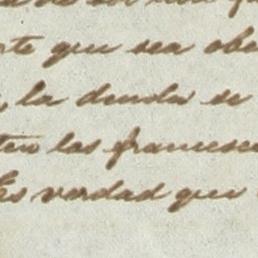 que sea obe
, la deuda se
ten las francesa
Es verdad que